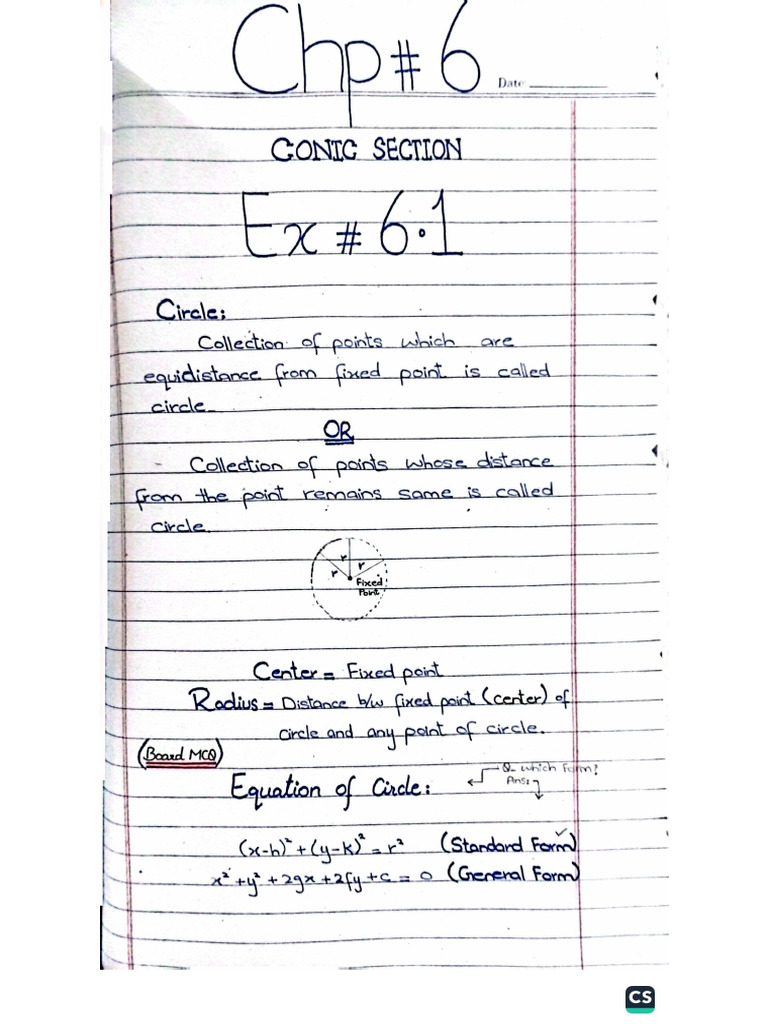 Chp # 6
Date
CONIC SECTION
Ex # 6.1
Circle:
Collection of points which are
equidistance from fixed point is called
circle.
OR
Collection of points whose distance
from the point remains same is called
circle.
r
r
r
Fixed
Point
Center = Fixed point
Radius = Distance b/w fixed point (center) of
circle and any point of circle.
(Board MCQ)
Equation of Circle:
Q. which form?
Ans:
(x-h)² + (y-k)² = r² (Standard Form)
x² + y² + 2gx + 2fy + c = 0 (General Form)
CS